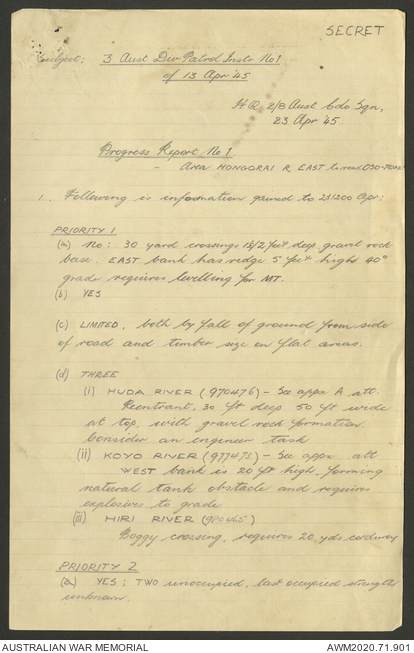 SECRET
Subject: 3 Aust Div Patrol Instr No1
of 13 Apr '45
H.Q. 2/8 Aust Cdo Sqn,
23 Apr '45.
Progress Report No 1
- Area HONGORAI R EAST to
1. Following is information gained to 231200 Apr:
PRIORITY 1
(a) No: 30 yard crossings 1½/2 feet deep gravel rock
base. EAST bank has ridge 5 feet high 40°
grade requires levelling for MT.
(b) YES
(c) LIMITED, both by fall of ground from side
of road and timber size on flat areas.
(d) THREE
(i) HUDA RIVER (970476) - See appx A att.
Reentrant, 30 ft deep 50 ft wide
at top, with gravel rock formation
Consider an engineer task
(ii) KOYO RIVER (977473) - See appx att
WEST bank is 20 ft high, forming
natural tank obstacle and requires
explosives to grade
(iii) HIRI RIVER (980465)
Boggy crossing, requires 20 yds corduroy
PRIORITY 2
(a) YES: TWO unoccupied, last occupied strength
unknown.
AUSTRALIAN WAR MEMORIAL
AWM2020.71.901